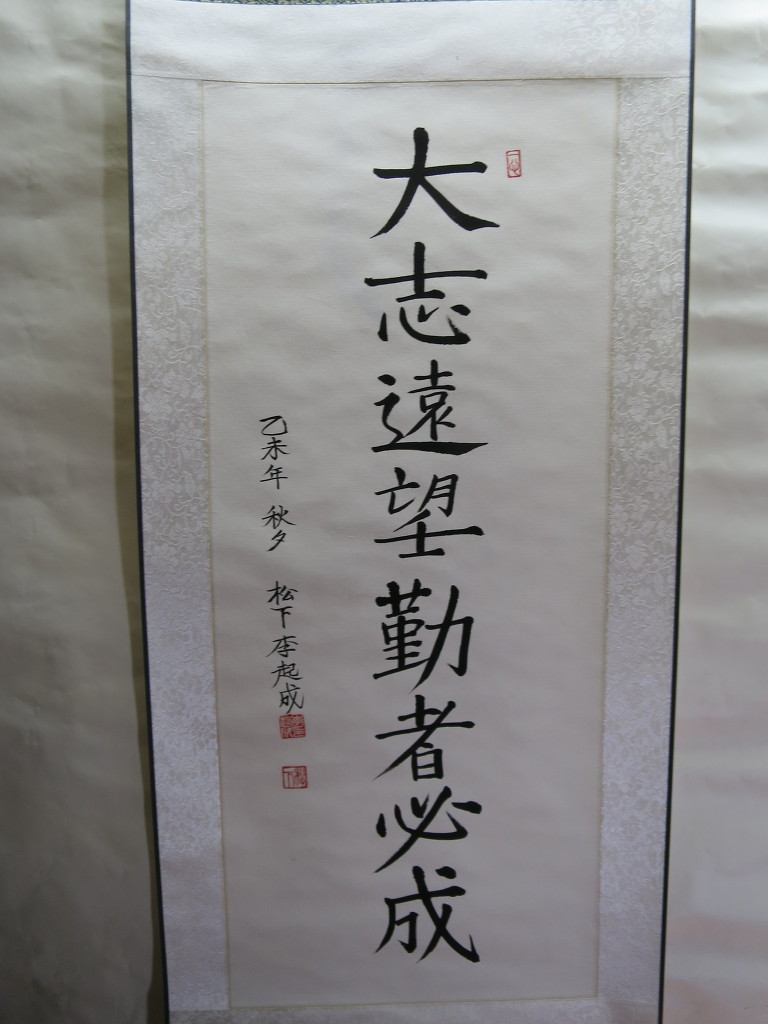 大志遠望勤者必成
乙未年 秋夕 松下李起成